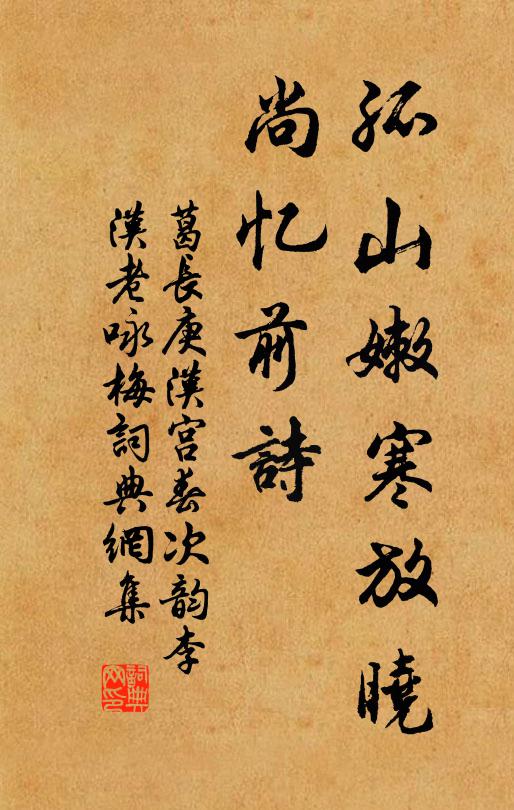 孤山嫩寒放曉
尚忆前詩
葛長庚漢宮春次韵李
漢老咏梅詞典網集
詞典网印